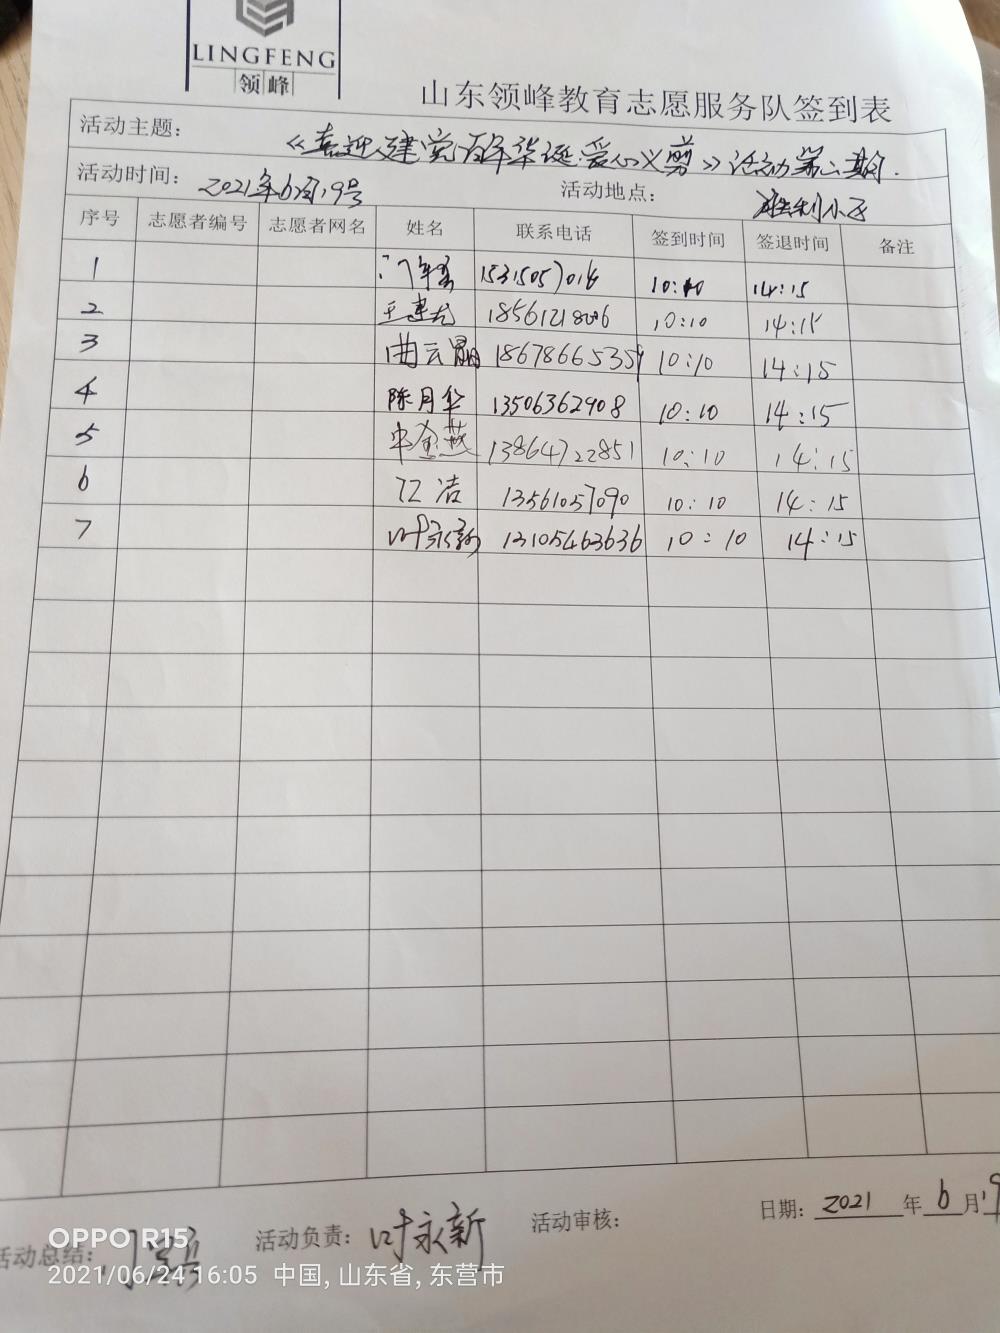 LINGFENG
领峰
山东领峰教育志愿服务队签到表
活动主题：
《喜迎建党百年华诞·爱心义剪》活动第二期.
活动时间： 2021年6月19号 活动地点： 胜利小区
序号 志愿者编号 志愿者网名 姓名 联系电话 签到时间 签退时间 备注
1 10:10 14:15
2 10:10 14:15
3 曲云鹃 18678665359 10:10 14:15
4 陈月华 13506362908 10:10 14:15
5 燕 13864722851 10:10 14:15
6 洁 13561057090 10:10 14:15
7 叶永新 13105463636 10:10 14:15
活动总结： 活动负责： 叶永新 活动审核： 日期： 2021 年 6 月 19
OPPO R15
2021/06/24 16:05 中国, 山东省, 东营市